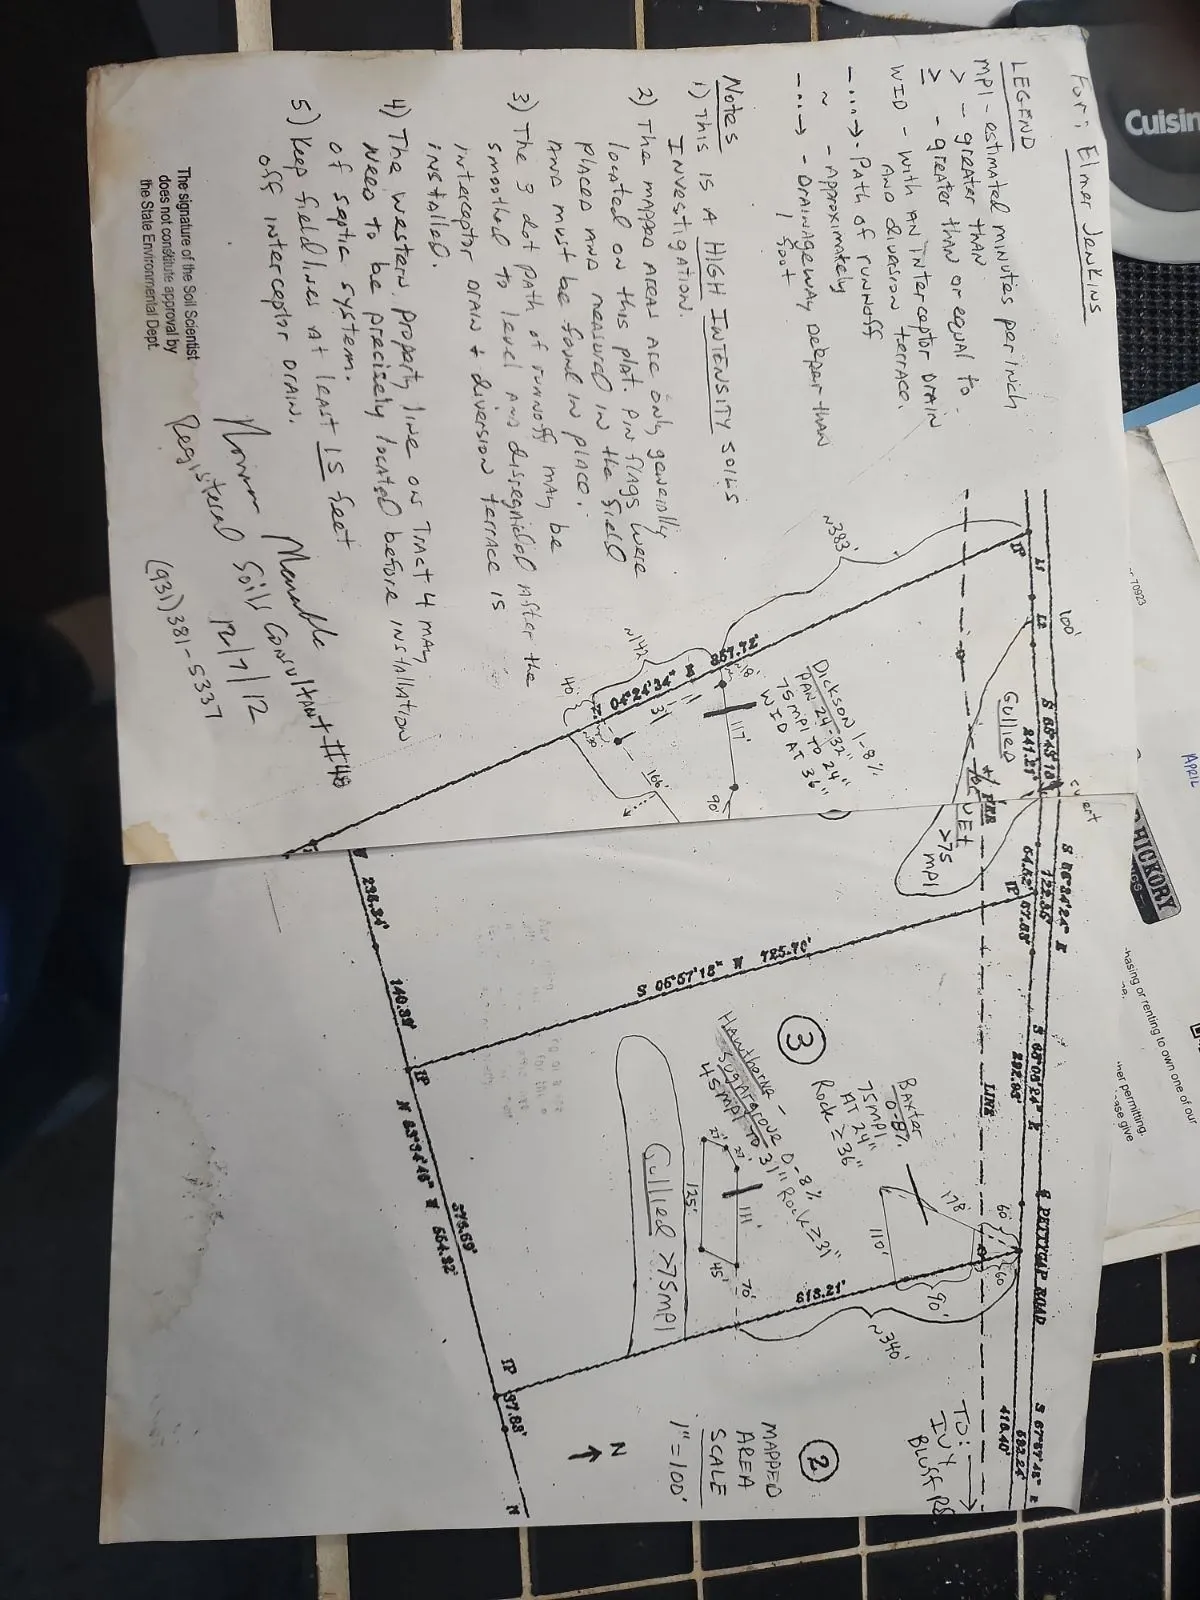 For: Elmer Jenkins
LEGEND
MPI - estimated minutes per inch
> - greater than
≥ - greater than or equal to
WID - with AN INterceptor DrAIN
AND diversion terrace.
-...→ - Path of runoff
~ - Approximately
-...→ - DrAINAgeway Deeper than
1 foot
Notes
1) This is A HIGH INTENSITY SOILS
INvestigation.
2) The mapped AreAs Are only generally
located on this plat. Pin flags were
placed AND measured in the field
AND must be found in place.
3) The 3 dot path of runoff may be
smoothed to level AND disregarded After the
interceptor DrAIN & diversion terrace is
installed.
4) The western property line on Tract 4 may
Need to be precisely located before INstallation
of septic system.
5) Keep field lines at least 15 feet
off interceptor DrAIN.
The signature of the Soil Scientist
does not constitute approval by
the State Environmental Dept.
Registered Soils Consultant #48
12/7/12
(931)381-5337
IP
L1
L2
100'
Gullied
S 68°45'10"
241.21'
~383'
857.72'
04°24'34"
~142'
40'
18'
31'
117'
166'
90'
Dickson 1-8%
PAN 24-32"
75MPI TO 24"
WID AT 36"
>75
MPI
S 66°24'24" E
122.35'
64.52'
57.83'
IP
S 68°08'24" E
292.98'
LINE
PETTYGAP ROAD
S 67°57'48" E
592.24'
418.40'
S 05°57'18" W 725.70'
3
Hawthorne -
Sugargrove 0-8%
45MPI TO 31" Rock ≥31"
Baxter
0-8%
75MPI
AT 24"
Rock ≥36"
178'
60'
60
110'
90'
27'
27'
111'
125'
45'
70'
Gullied >75MPI
618.21'
~340'
236.34'
140.39'
IP
N 83°34'48" W 554.92'
IP
37.88'
N
TO:
IVY
Bluff Rd.
2
MAPPED
AREA
SCALE
1"=100'
N
Cuisin
70923
APRIL
HICKORY
hasing or renting to own one of our
her permitting.
ase give